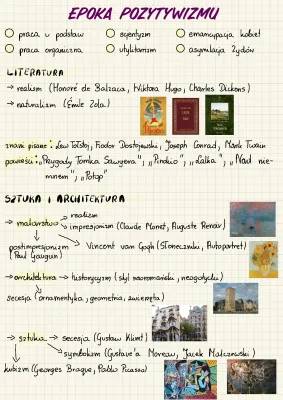 EPOKA POZYTYWIZMU
praca u podstaw
scjentyzm
emancypacja kobiet
praca organiczna
utylitaryzm
asymilacja Żydów
LITERATURA
→ realizm (Honoré de Balzaca, Wiktora Hugo, Charles Dickens)
→ naturalizm (Émile Zola)
znani pisarze: Lew Tołstoj, Fiodor Dostojewski, Joseph Conrad, Mark Twain
powieści: "Przygody Tomka Sawyera", "Pinokio", "Lalka", "Nad Nie-
mnem", "Potop"
SZTUKA I ARCHITEKTURA
→ malarstwo
→ realizm
→ impresjonizm (Claude Monet, Auguste Renoir)
Vincent van Gogh (Słoneczniki, Autoportret)
postimpresjonizm
(Paul Gauguin)
→ architektura → historycyzm (styl neoromański, neogotycki)
secesja (ornamentyka, geometria, zwierzęta)
→ sztuka → secesja (Gustaw Klimt)
symbolizm (Gustave'a Moreau, Jacek Malczewski)
kubizm (Georges Braque, Pablo Picasso)